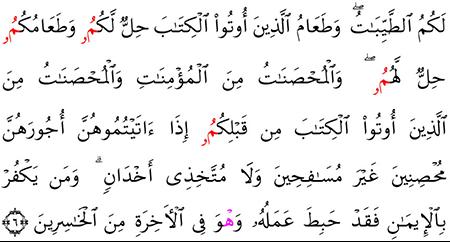 لَكُمُ ٱلطَّيِّبَـٰتُۖ وَطَعَامُ ٱلَّذِينَ أُوتُواْ ٱلْكِتَـٰبَ حِلٌّ لَّكُمُۥ وَطَعَامُكُمُۥ
حِلٌّ لَّهُمُۥۖ وَٱلْمُحْصَنَـٰتُ مِنَ ٱلْمُؤْمِنَـٰتِ وَٱلْمُحْصَنَـٰتُ مِنَ
ٱلَّذِينَ أُوتُواْ ٱلْكِتَـٰبَ مِن قَبْلِكُمُۥ إِذَا ءَاتَيْتُمُوهُنَّ أُجُورَهُنَّ
مُحْصِنِينَ غَيْرَ مُسَـٰفِحِينَ وَلَا مُتَّخِذِى أَخْدَانٍۗ وَمَن يَكْفُرْ
بِٱلْإِيمَـٰنِ فَقَدْ حَبِطَ عَمَلُهُۥ وَهْوَ فِى ٱلْأَخِرَةِ مِنَ ٱلْخَـٰسِرِينَ ٦